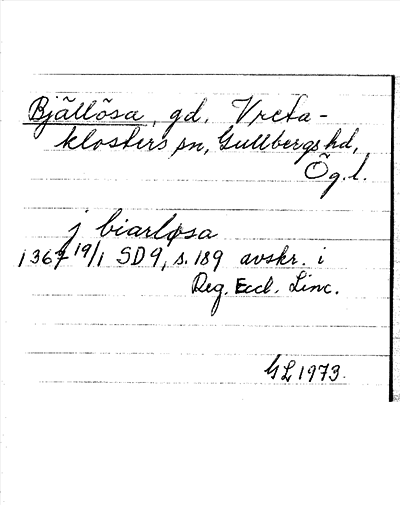 Bjällösa, gd, Vreta-
klosters sn, Gullbergs hd,
Ög.l.
j biarløsa
1367 19/1 SD9, s. 189 avskr. i
Reg. Eccl. Linc.
GL 1973.